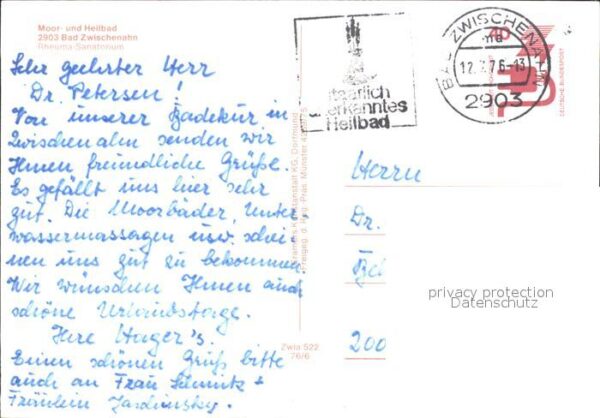 Moor- und Heilbad
2903 Bad Zwischenahn
Rheuma-Sanatorium
Sehr geehrter Herr
Dr. Petersen!
Von unserer Badekur in
Zwischenahn senden wir
Ihnen freundliche Grüße.
Es gefällt uns hier sehr
gut. Die Moorbäder, Unter-
wassermassagen usw. schei-
nen uns gut zu bekommen
Wir wünschen Ihnen auch
schöne Urlaubstage.
Ihre Hager's.
Einen schönen Gruß bitte
auch an Frau &
Fräulein
Zwia 522
76/6
Freigeg. d. Reg. Präs. Münster
staatlich
anerkanntes
Heilbad
BAD ZWISCHENAHN
12.7.76-13
2903
40
DEUTSCHE BUNDESPOST
Herrn
Dr.
200
privacy protection
Datenschutz